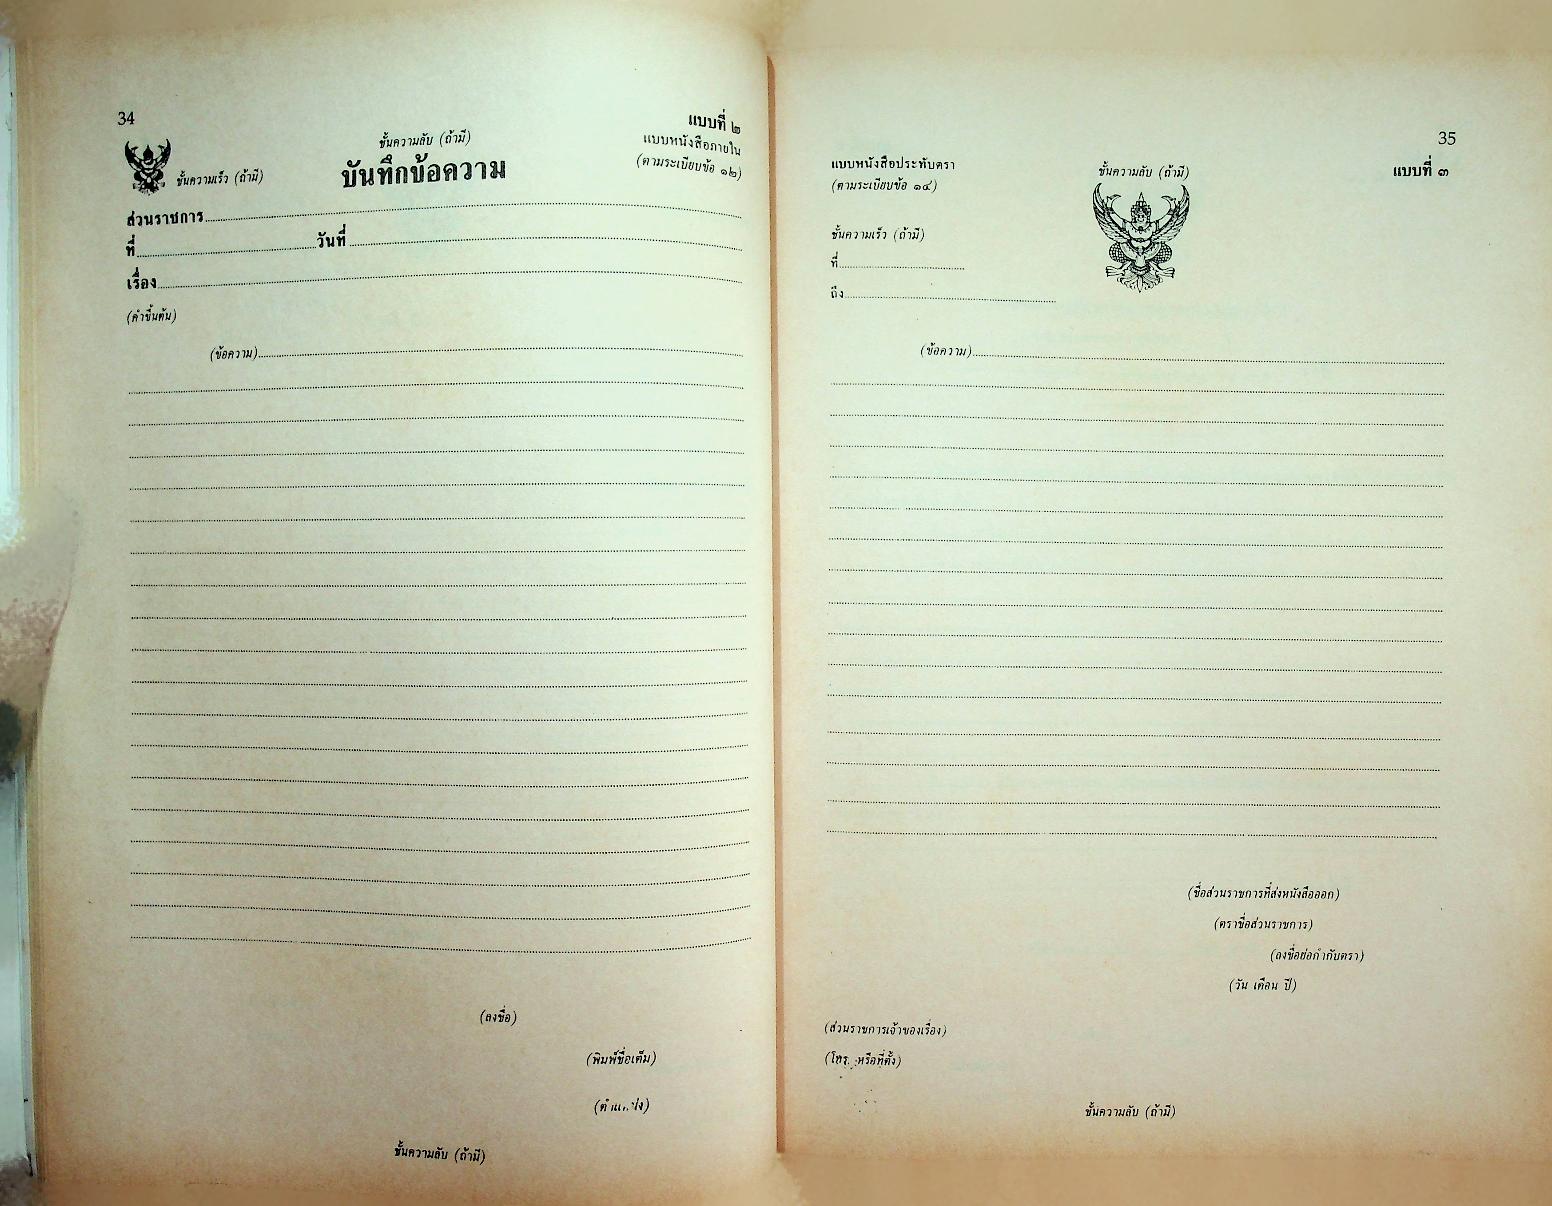 34
แบบที่ ๒
ชั้นความลับ (ถ้ามี)
แบบหนังสือภายใน
ชั้นความเร็ว (ถ้ามี)
บันทึกข้อความ
(ตามระเบียบข้อ ๑๒)
ส่วนราชการ
ที่ วันที่
เรื่อง
(คำขึ้นต้น)
(ข้อความ)
(ลงชื่อ)
(พิมพ์ชื่อเต็ม)
(ตำแหน่ง)
ชั้นความลับ (ถ้ามี)
35
แบบหนังสือประทับตรา
ชั้นความลับ (ถ้ามี)
แบบที่ ๓
(ตามระเบียบข้อ ๑๔)
ชั้นความเร็ว (ถ้ามี)
ที่
ถึง
(ข้อความ)
(ชื่อส่วนราชการที่ส่งหนังสือออก)
(ตราชื่อส่วนราชการ)
(ลงชื่อย่อกำกับตรา)
(วัน เดือน ปี)
(ส่วนราชการเจ้าของเรื่อง)
(โทร. หรือที่ตั้ง)
ชั้นความลับ (ถ้ามี)